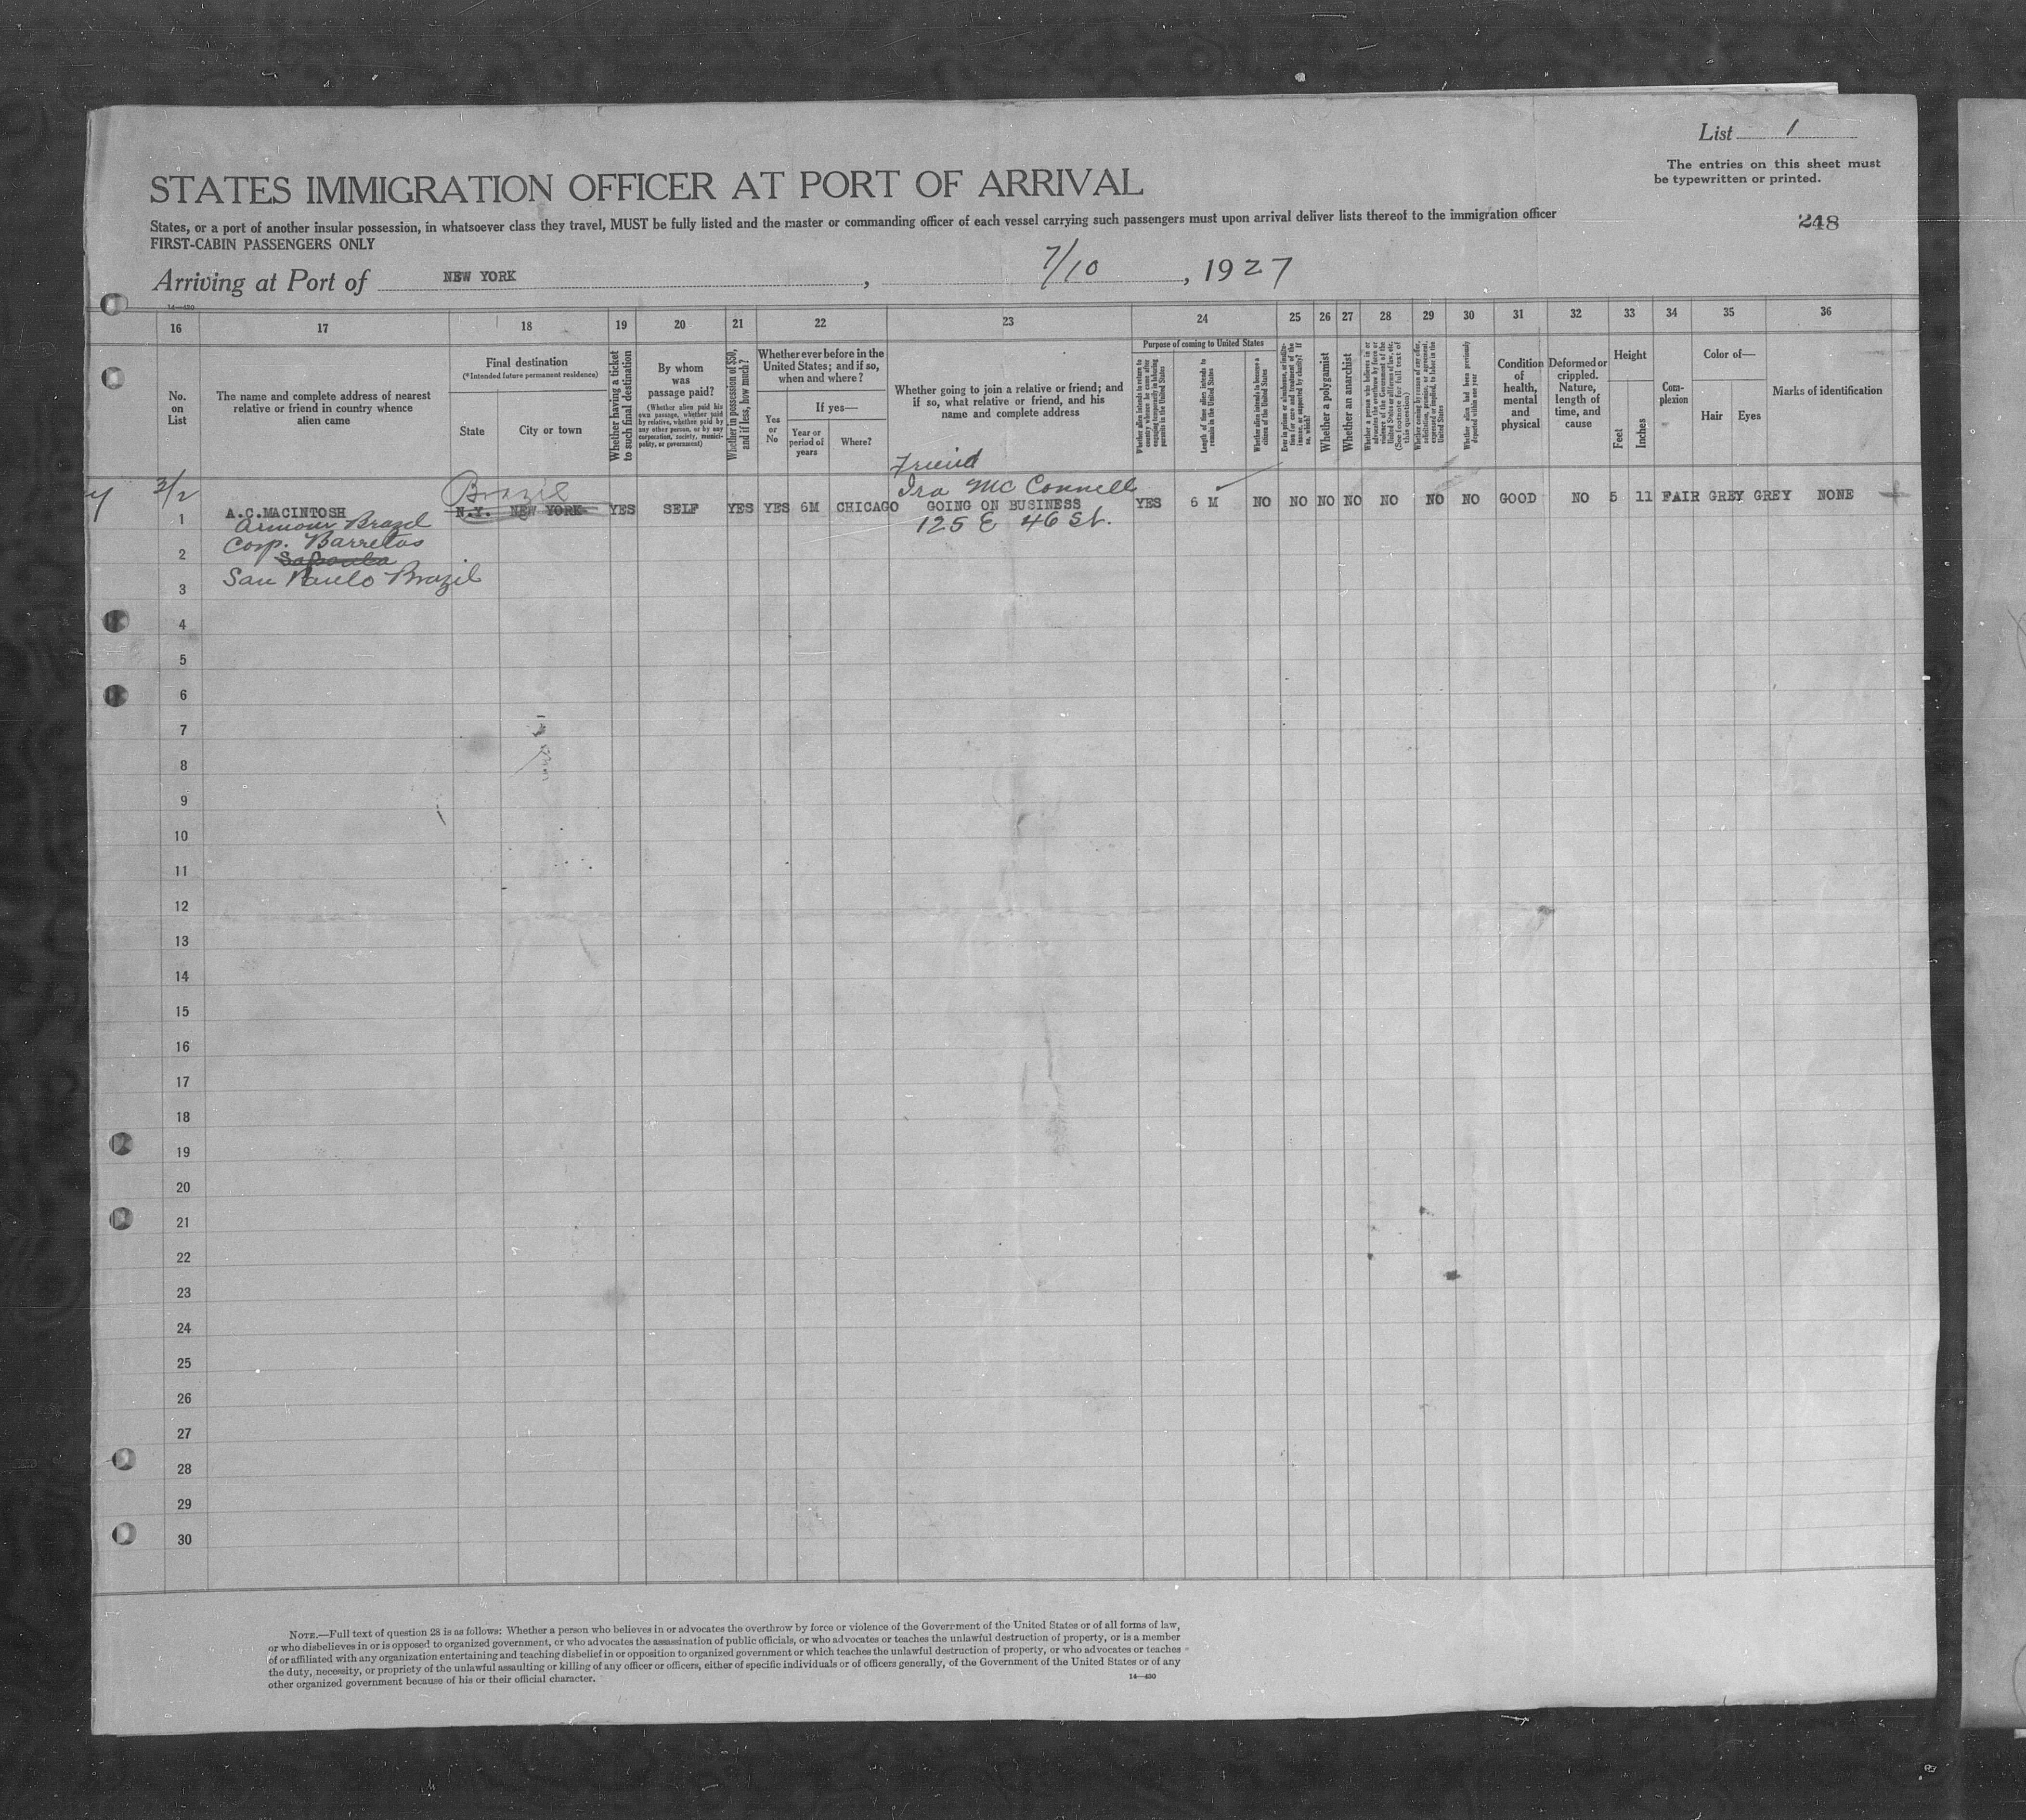 List 1
The entries on this sheet must
be typewritten or printed.
248
STATES IMMIGRATION OFFICER AT PORT OF ARRIVAL
States, or a port of another insular possession, in whatsoever class they travel, MUST be fully listed and the master or commanding officer of each vessel carrying such passengers must upon arrival deliver lists thereof to the immigration officer
FIRST-CABIN PASSENGERS ONLY
Arriving at Port of NEW YORK , 7/10 , 1927
14—430
16 17 18 19 20 21 22 23 24 25 26 27 28 29 30 31 32 33 34 35 36
No. on List
The name and complete address of nearest
relative or friend in country whence
alien came
Final destination
(*Intended future permanent residence)
State
City or town
Whether having a ticket
to such final destination
By whom
was
passage paid?
(Whether alien paid his
own passage, whether paid
by relative, whether paid by
any other person, or by any
corporation, society, munici-
pality, or government)
Whether in possession of $50,
and if less, how much?
Whether ever before in the
United States; and if so,
when and where?
Yes
or
No
If yes—
Year or
period of
years
Where?
Whether going to join a relative or friend; and
if so, what relative or friend, and his
name and complete address
Purpose of coming to United States
Whether alien intends to return to
country whence he came after
engaging temporarily in laboring
pursuits in the United States
Length of time alien intends to
remain in the United States
Whether alien intends to become a
citizen of the United States
Ever in prison or almshouse, or institu-
tion for care and treatment of the
insane, or supported by charity? If
so, which?
Whether a polygamist
Whether an anarchist
Whether a person who believes in or
advocates the overthrow by force or
violence of the Government of the
United States or all forms of law, etc.
(See footnote for full text of
this question)
Whether coming by reason of any offer,
solicitation, promise, or agreement,
expressed or implied, to labor in the
United States
Whether alien had been previously
deported within one year
Condition
of
health,
mental
and
physical
Deformed or
crippled.
Nature,
length of
time, and
cause
Height
Feet
Inches
Com-
plexion
Color of—
Hair
Eyes
Marks of identification
Friend
3/2 Brazil Ira McConnell
1 A.C.MACINTOSH N.Y. NEW YORK YES SELF YES YES 6M CHICAGO GOING ON BUSINESS YES 6 M NO NO NO NO NO NO NO GOOD NO 5 11 FAIR GREY GREY NONE
Armour Brazil 125 E 46 St.
Corp. Barretos
2
San Paulo Brazil
3
4
5
6
7
8
9
10
11
12
13
14
15
16
17
18
19
20
21
22
23
24
25
26
27
28
29
30
NOTE.—Full text of question 28 is as follows: Whether a person who believes in or advocates the overthrow by force or violence of the Government of the United States or of all forms of law,
or who disbelieves in or is opposed to organized government, or who advocates the assassination of public officials, or who advocates or teaches the unlawful destruction of property, or is a member
of or affiliated with any organization entertaining and teaching disbelief in or opposition to organized government or which teaches the unlawful destruction of property, or who advocates or teaches
the duty, necessity, or propriety of the unlawful assaulting or killing of any officer or officers, either of specific individuals or of officers generally, of the Government of the United States or of any
other organized government because of his or their official character.
14—430